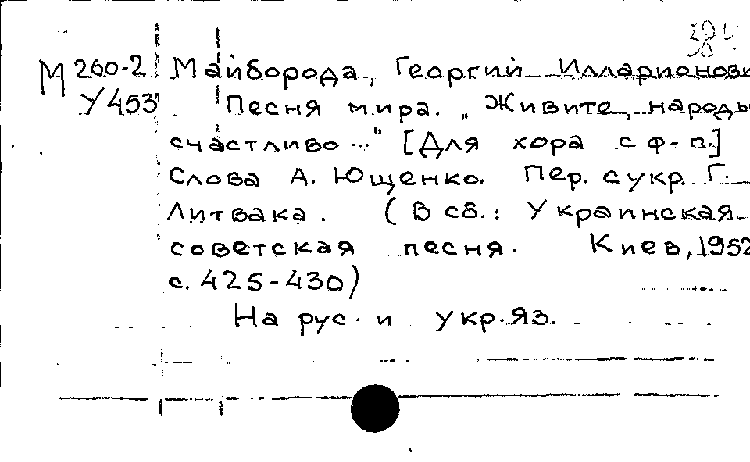 М 260-2 Майборода, Георгий Илларионови
У 453 Песня мира. „Живите, народы
счастливо..." [Для хора с ф-п.]
Слова А. Ющенко. Пер. с укр. Г.
Литвака. (В сб.: Украинская
советская песня. Киев, 1952
с. 425-430)
На рус. и укр. яз.